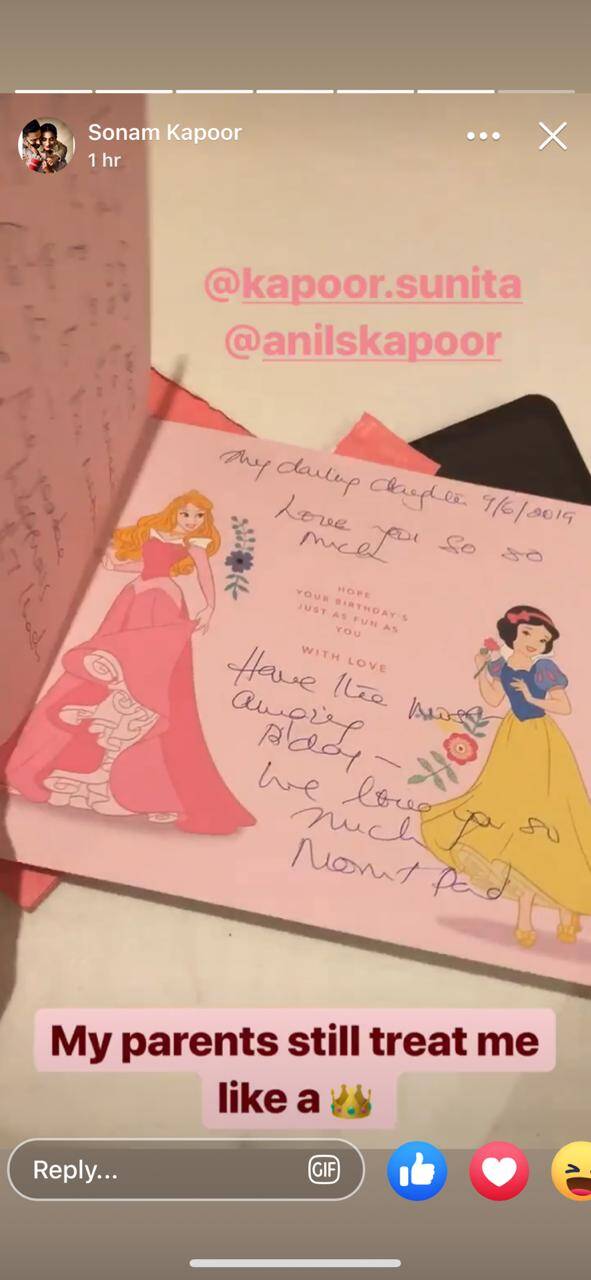 Sonam Kapoor
1 hr
@kapoor.sunita
@anilskapoor
My darling daughter 9/6/2019
Love you so so
much
HOPE
YOUR BIRTHDAY'S
JUST AS FUN AS
YOU
WITH LOVE
Have the most
amazing
B'day –
We love you so
much
Mom + Dad
My parents still treat me
like a 👑
Reply...
GIF